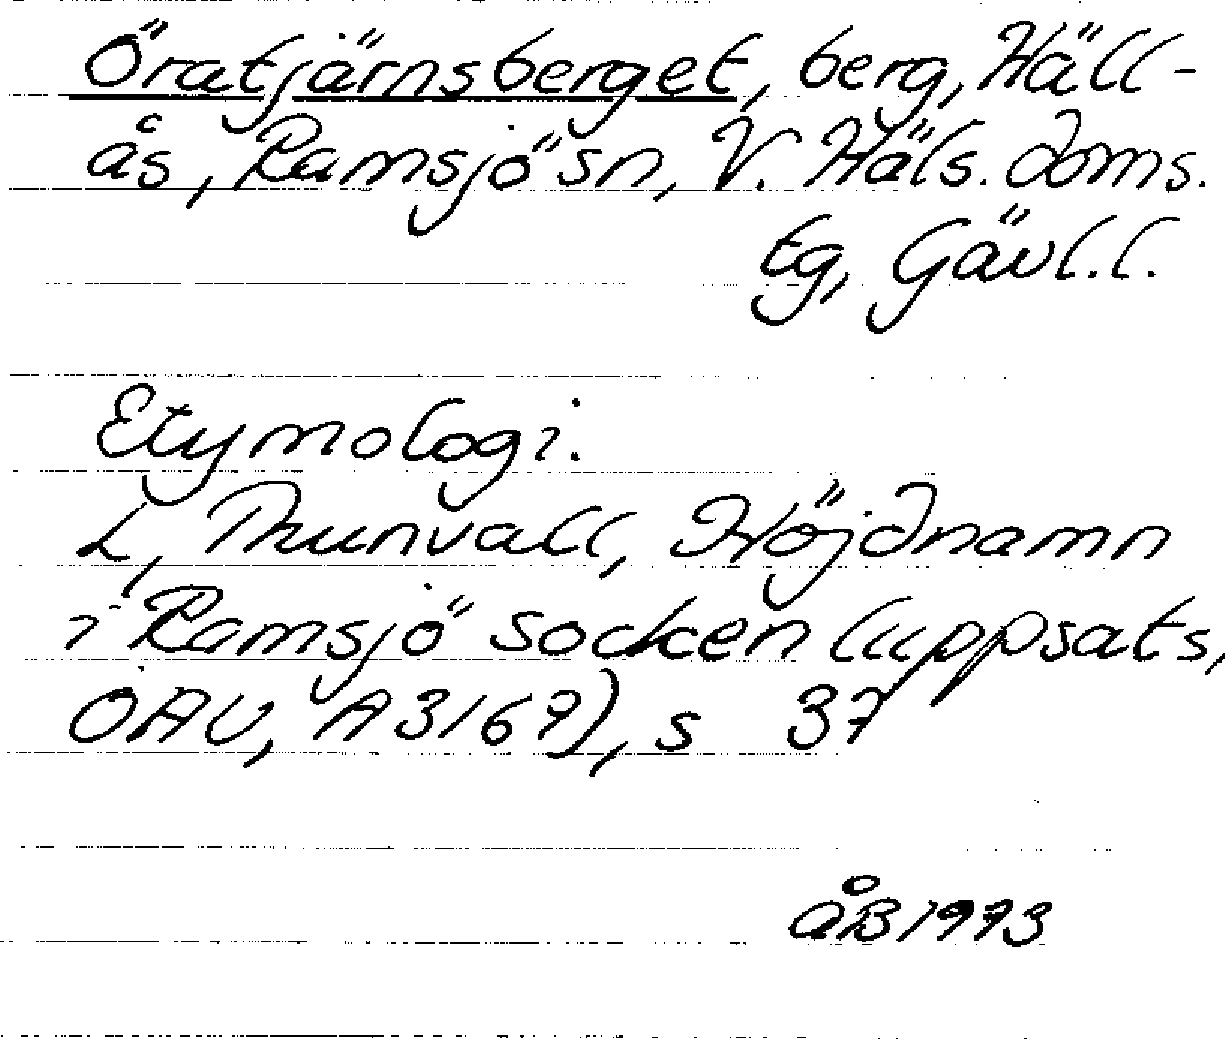 Öratjärnsberget, berg, Häll-
ås, Ramsjö sn, V. Häls. doms.
tg, Gävl.l.
Etymologi.
L, Thunvall, Höjdnamn
i Ramsjö socken (uppsats,
OAU, A3167), s 37
ÅB 1973